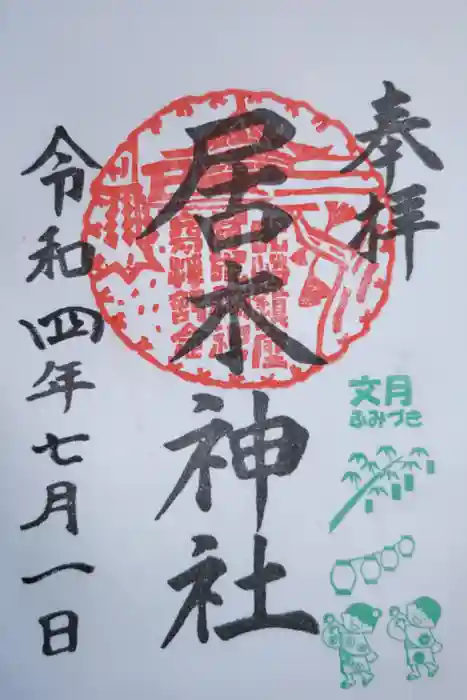 奉拝
居木神社
文月
ふみづき
令和四年七月一日